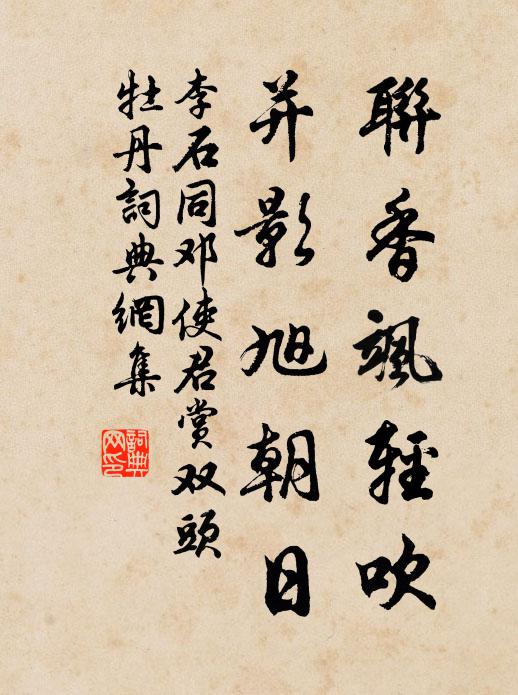 聯香颯輕吹
并影旭朝日
李石同邓使君赏双頭
牡丹詞典網集
詞典
网印